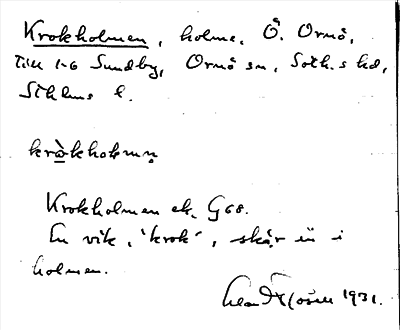 Krokholmen, holme, Ö. Ornö,
till 1-6 Sundby, Ornö sn, Soth.s hd,
Sthlms l.
kròkholmṇ
Krokholmen ek. G68.
En vik, 'krok', skär in i
holmen.
1931.